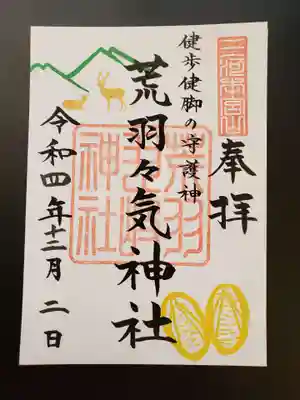 三河本宮山
奉拝
健歩健脚の守護神
荒羽々気神社
令和四年十二月二日